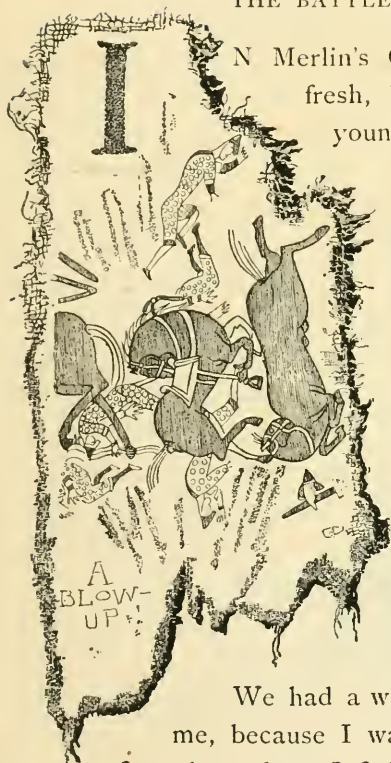 THE BATTLE
IN Merlin's
fresh,
youn
A
BLOW-
UP
We had a w
me, because I wa